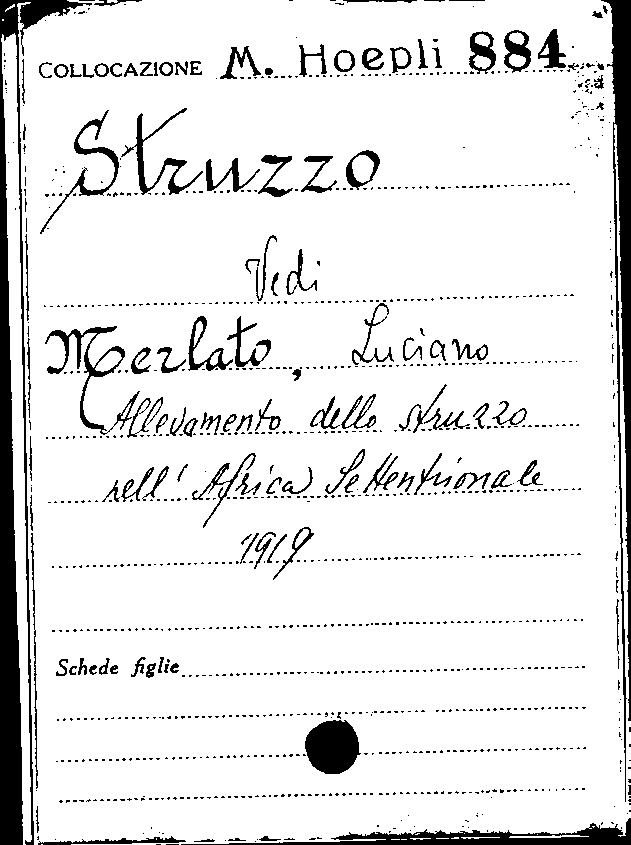 COLLOCAZIONE M. Hoepli 884
Struzzo
Vedi
Merlato, Luciano
Allevamento dello struzzo
nell' Africa Settentrionale
1919
Schede figlie